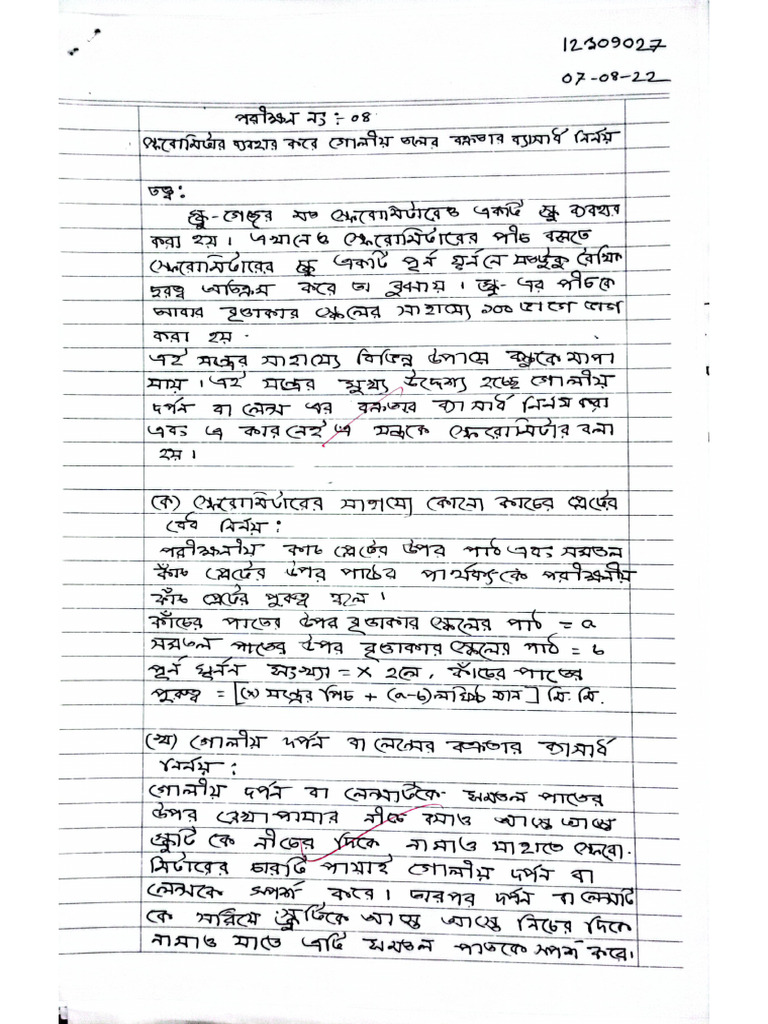 12309027
07-08-22
পরীক্ষন নং :- 08
স্ফেরোমিটার ব্যবহার করে গোলীয় তলের বক্রতার ব্যাসার্ধ নির্নয়
তত্ত্ব:
স্ক্রু-গেজের মত স্ফেরোমিটারেও একটি স্ক্রু ব্যবহার
করা হয়। এখানেও স্ফেরোমিটারের পীচ বলতে
স্ফেরোমিটারের স্ক্রু একটি পূর্ন ঘূর্ননে যতটুকু রৈখিক
দূরত্ব অতিক্রম করে তা বুঝায়। স্ক্রু-এর পীচকে
আবার বৃত্তাকার স্কেলের সাহায্যে ১০০ ভাগে ভাগ
করা হয়.
এই যন্ত্রের সাহায্যে বিভিন্ন উপায়ে বস্তুকে মাপা
যায়। এই যন্ত্রের মুখ্য উদ্দেশ্য হচ্ছে গোলীয়
দর্পন বা লেন্স এর বক্রতার ব্যাসার্ধ নির্নয় করা
এবং এ কারনেই এ যন্ত্রকে স্ফেরোমিটার বলা
হয়।
(ক) স্ফেরোমিটারের সাহায্যে কোনো কাচের প্লেটের
বেধ নির্নয়:
পরীক্ষনীয় কাচ প্লেটের উপর পাঠ এবং সমতল
কাঁচ প্লেটের উপর পাঠের পার্থক্যকে পরীক্ষনীয়
কাঁচ প্লেটের পুরুত্ব বলে।
কাঁচের পাতের উপর বৃত্তাকার স্কেলের পাঠ = a
সমতল পাতের উপর বৃত্তাকার স্কেলের পাঠ = b
পূর্ন ঘূর্নন সংখ্যা = x হলে, কাঁচের পাতের
পুরুত্ব = [(x) যন্ত্রের পিচ + (a-b) লঘিষ্ঠ মান] মি.মি.
(খ) গোলীয় দর্পন বা লেন্সের বক্রতার ব্যাসার্ধ
নির্নয়:
গোলীয় দর্পন বা লেন্সটিকে সমতল পাতের
উপর রেখা পায়ার নীচে বসাও আস্তে আস্তে
স্ক্রুটি কে নীচের দিকে নামাও যাহাতে স্ফেরো-
মিটারের চারটি পায়াই গোলীয় দর্পন বা
লেন্সকে স্পর্শ করে। তারপর দর্পন বা লেন্সটি
কে সরিয়ে স্ক্রুটিকে আস্তে আস্তে নিচের দিকে
নামাও যাতে এটি সমতল পাতকে স্পর্শ করে।